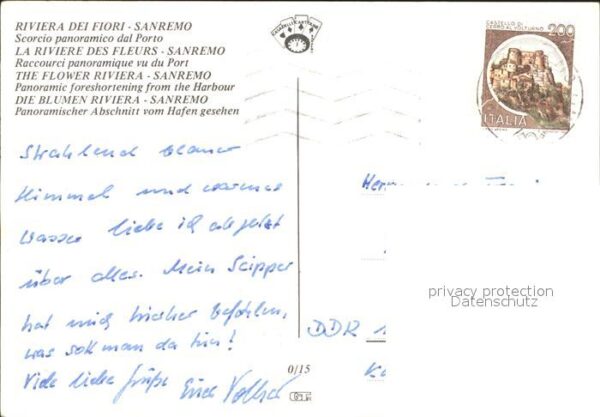 RIVIERA DEI FIORI - SANREMO
Scorcio panoramico dal Porto
LA RIVIERE DES FLEURS - SANREMO
Raccourci panoramique vu du Port
THE FLOWER RIVIERA - SANREMO
Panoramic foreshortening from the Harbour
DIE BLUMEN RIVIERA - SANREMO
Panoramischer Abschnitt vom Hafen gesehen
CASTELLO DI
CERRO AL VOLTURNO
200
ITALIA
Strahlend blauer
Himmel und warmes
Wasser liebe ich ab jetzt
über alles. Mein Scipper
hat mich hierher befohlen,
was soll man da tun!
Viele liebe Grüße
Herr
privacy protection
Datenschutz
DDR 1
0/15